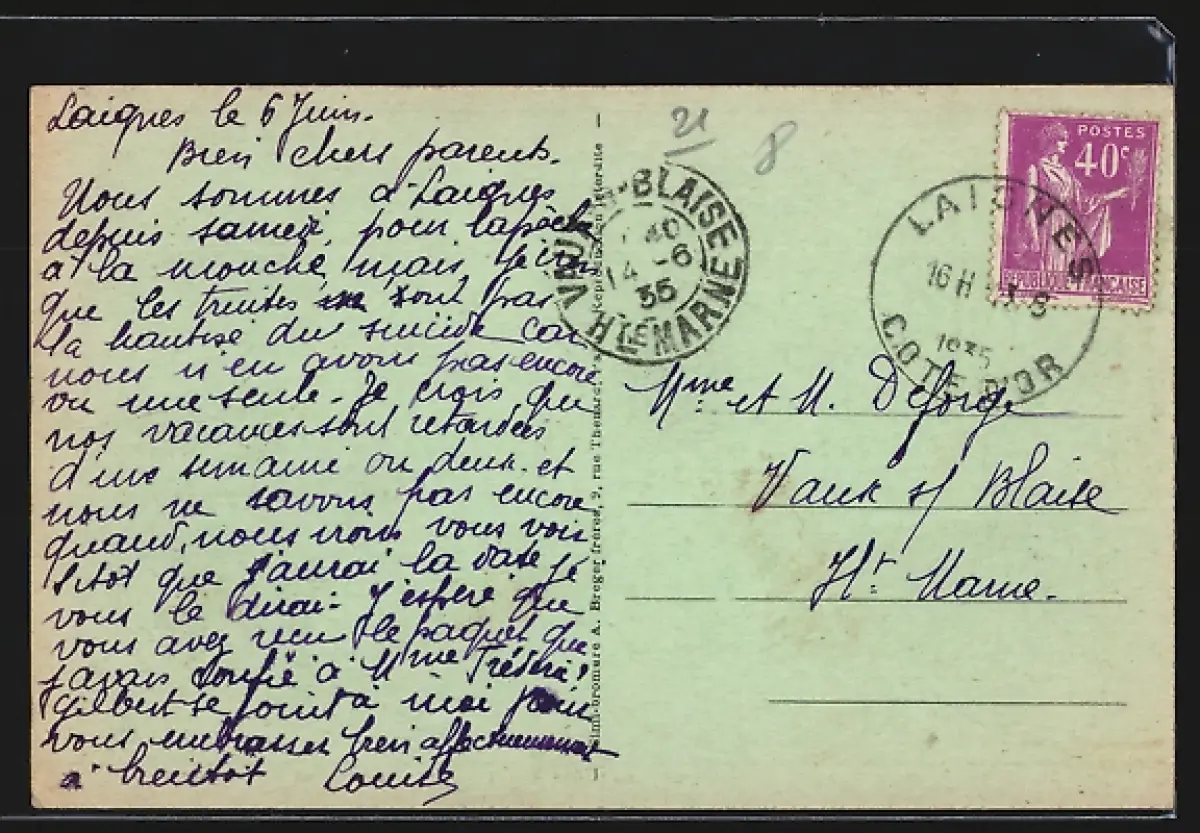 Laignes le 6 Juin.
Bien chers parents.
Nous sommes à Laignes
depuis samedi, pour la pêche
à la mouche, mais je crois
que les truites sont pas
la hantise du suicide car
nous n'en avons pas encore
vu une seule. Je crois que
nos vacances sont retardées
d'une semaine ou deux. et
nous ne savons pas encore
quand, nous irons vous voir
sitôt que j'aurai la date je
vous le dirai. J'espère que
vous avez reçu le paquet que
j'avais confié à Mme
Gilbert se joint à moi pour
vous embrasser bien affectueusement
à bientôt Louise
Simi-bromure A. Breger frères, 9, rue Thénard
Reproduction interdite
21
8
BLAISE
40
14 - 6
35
HTE MARNE
POSTES
40c
REPUBLIQUE FRANÇAISE
LAIGNES
16H
1935
COTE D'OR
Mme et M. Deforge
Vaux s/ Blaise
Hte Marne.